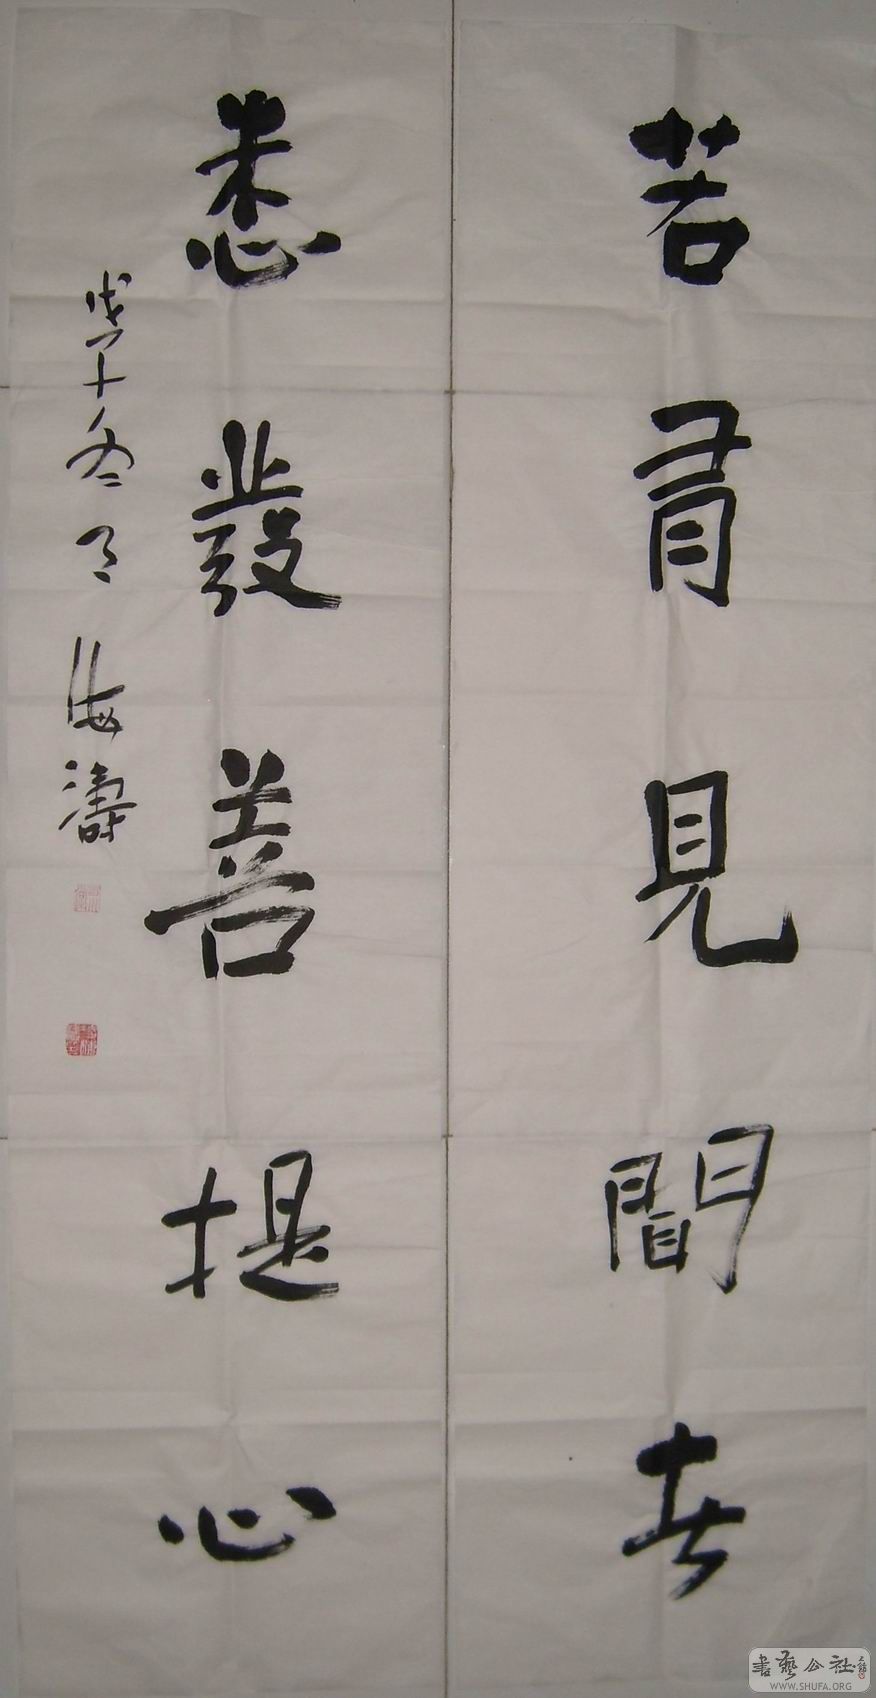 若有見聞者
悉發菩提心
戊子冬月海濤
書藝公社
WWW.SHUFA.ORG